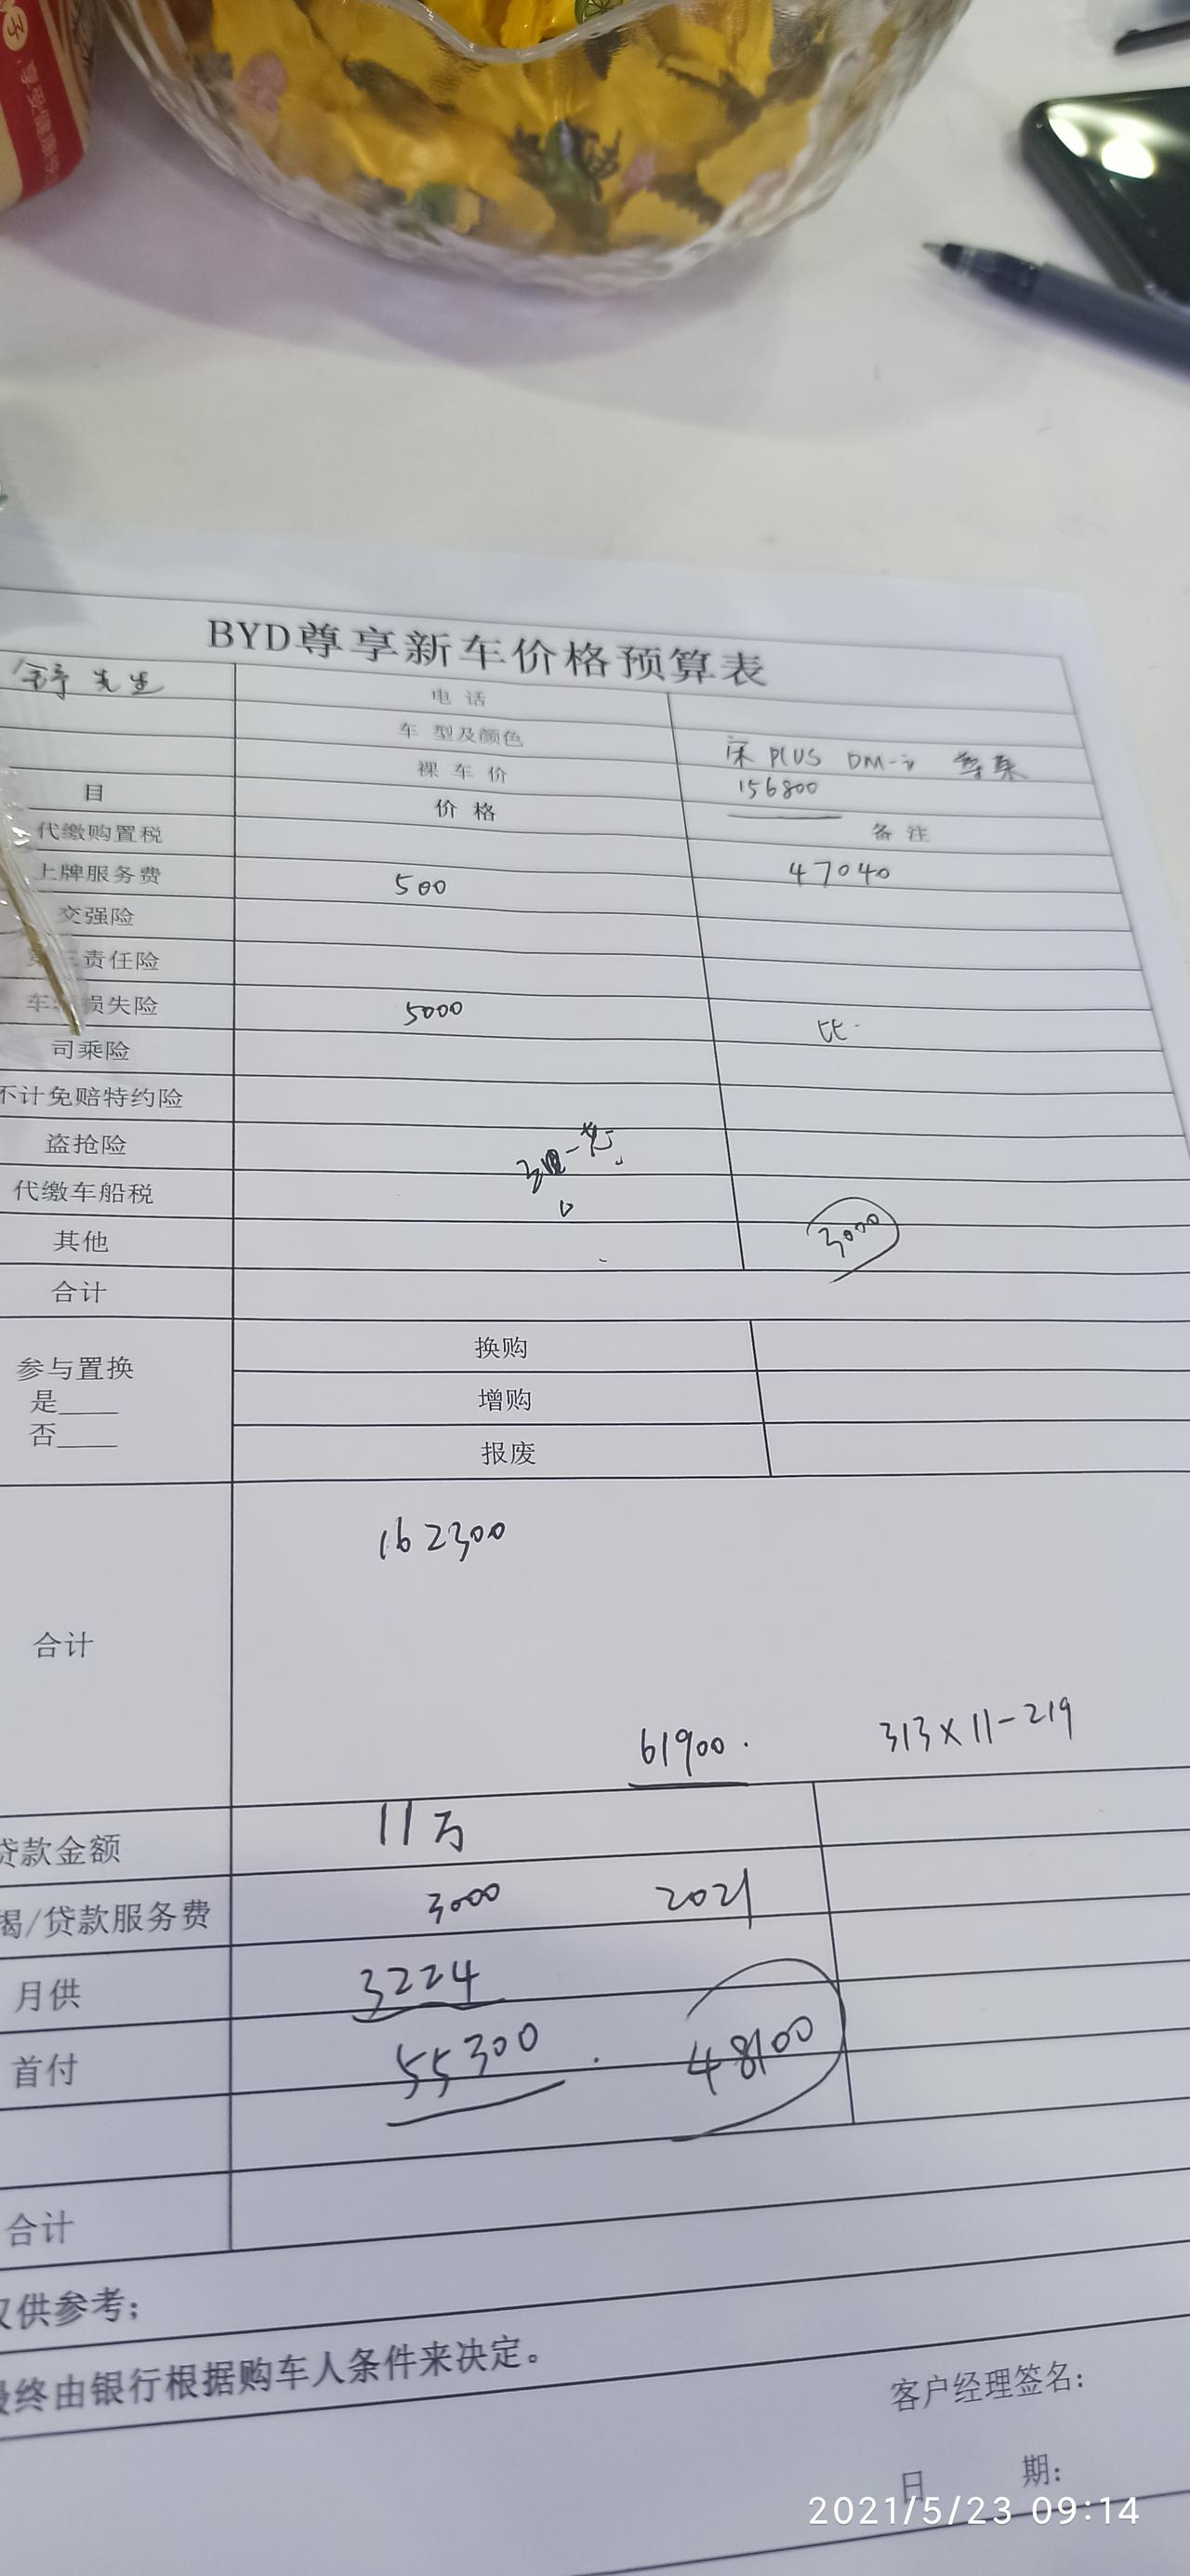 享受健康
BYD尊享新车价格预算表
舒先生 电 话
车 型及颜色 宋 PLUS DM-i 尊荣
裸 车 价 156800
目 价 格 备 注
代缴购置税 47040
上牌服务费 500
交强险
责任险
车 损失险 5000 比.
司乘险
不计免赔特约险
盗抢险
代缴车船税
其他 3000
合计
参与置换 换购
是____ 增购
否____ 报废
162300
合计
61900. 313×11-219
贷款金额 11万
揭/贷款服务费 3000 2021
月供 3224
首付 55300. 48100
合计
仅供参考;
最终由银行根据购车人条件来决定。
客户经理签名:
日 期:
2021/5/23 09:14